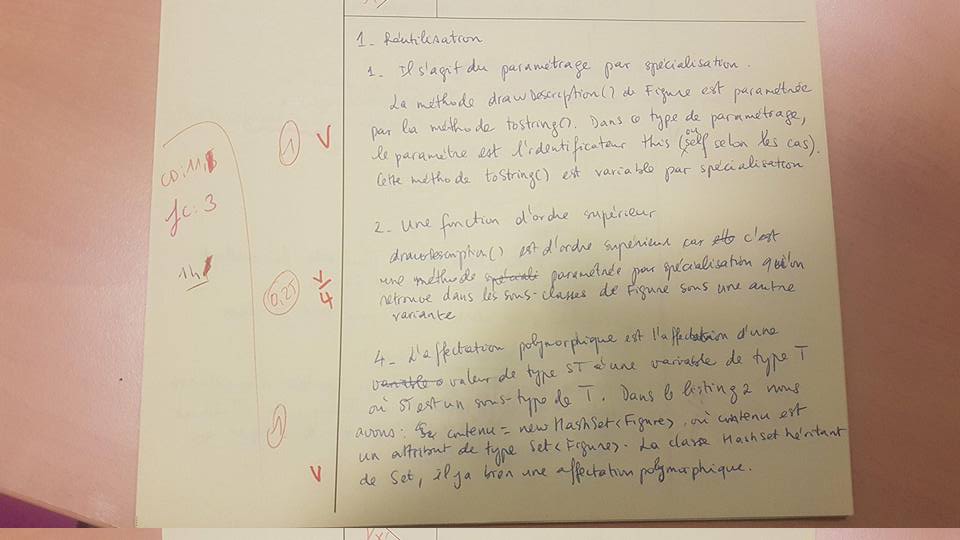 1- Réutilisation
1. Il s'agit du paramétrage par spécialisation.
La méthode drawDescription() de Figure est paramétrée
par la méthode toString(). Dans ce type de paramétrage,
le paramètre est l'identificateur this (ou self selon les cas).
Cette méthode toString() est variable par spécialisation
2- Une fonction d'ordre supérieur
drawDescription() est d'ordre supérieur car c'est
une méthode paramétrée par spécialisation qu'on
retrouve dans les sous-classes de Figure sous une autre
variante
4- L'affectation polymorphique est l'affectation d'une
valeur de type ST à une variable de type T
où ST est un sous-type de T. Dans le listing 2 nous
avons: contenu = new HashSet<Figure>, où contenu est
un attribut de type Set<Figure>. La classe HashSet héritant
de Set, il y a bien une affectation polymorphique.
1 V
fc: 3
14
0,25 V/4
1
V